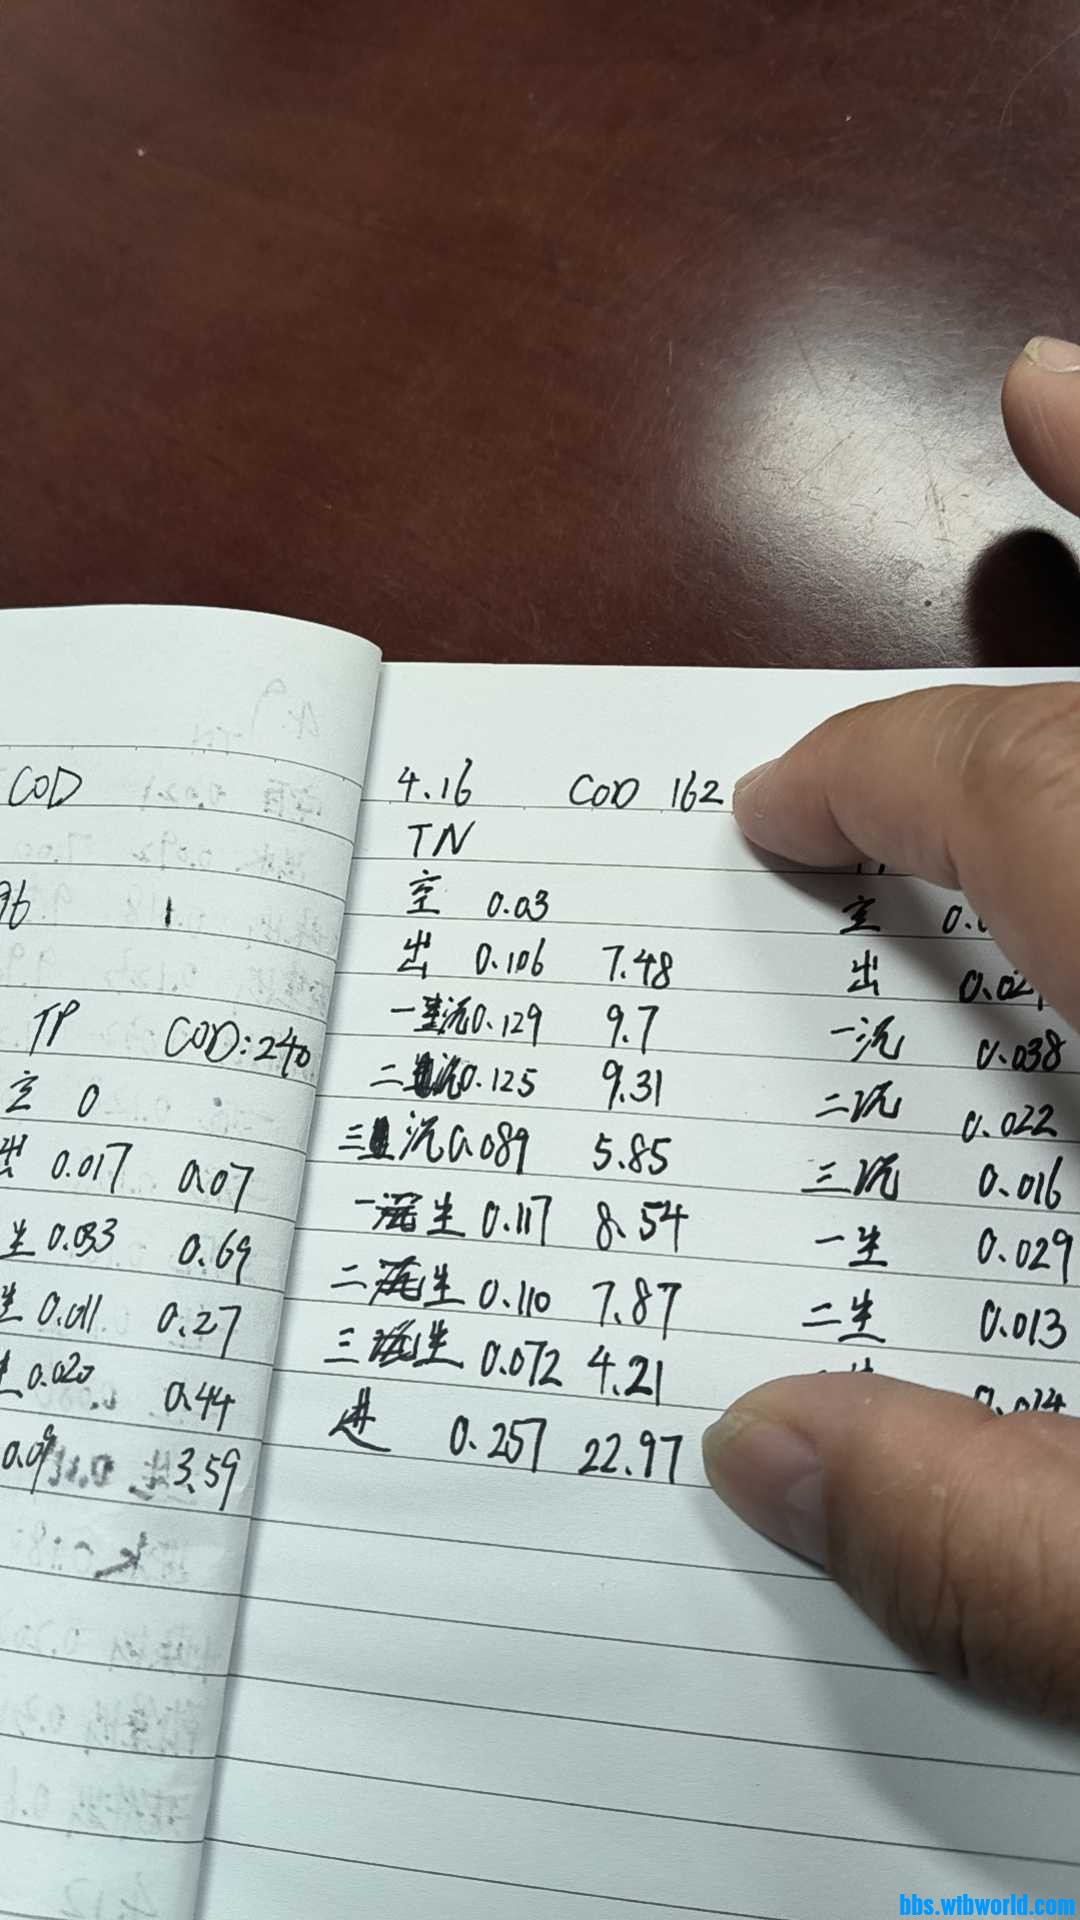 COD
96 1
TP COD:240
空 0
出 0.017 0.07
生 0.033 0.69
生 0.011 0.27
生 0.020 0.44
0.09 3.59
4.16 COD 162
TN
空 0.03
出 0.106 7.48
一沉 0.129 9.7
二沉 0.125 9.31
三沉 0.089 5.85
一生 0.117 8.54
二生 0.110 7.87
三生 0.072 4.21
进 0.257 22.97
空 0.0
出 0.02
一沉 0.038
二沉 0.022
三沉 0.016
一生 0.029
二生 0.013
0.014
bbs.wtbworld.com